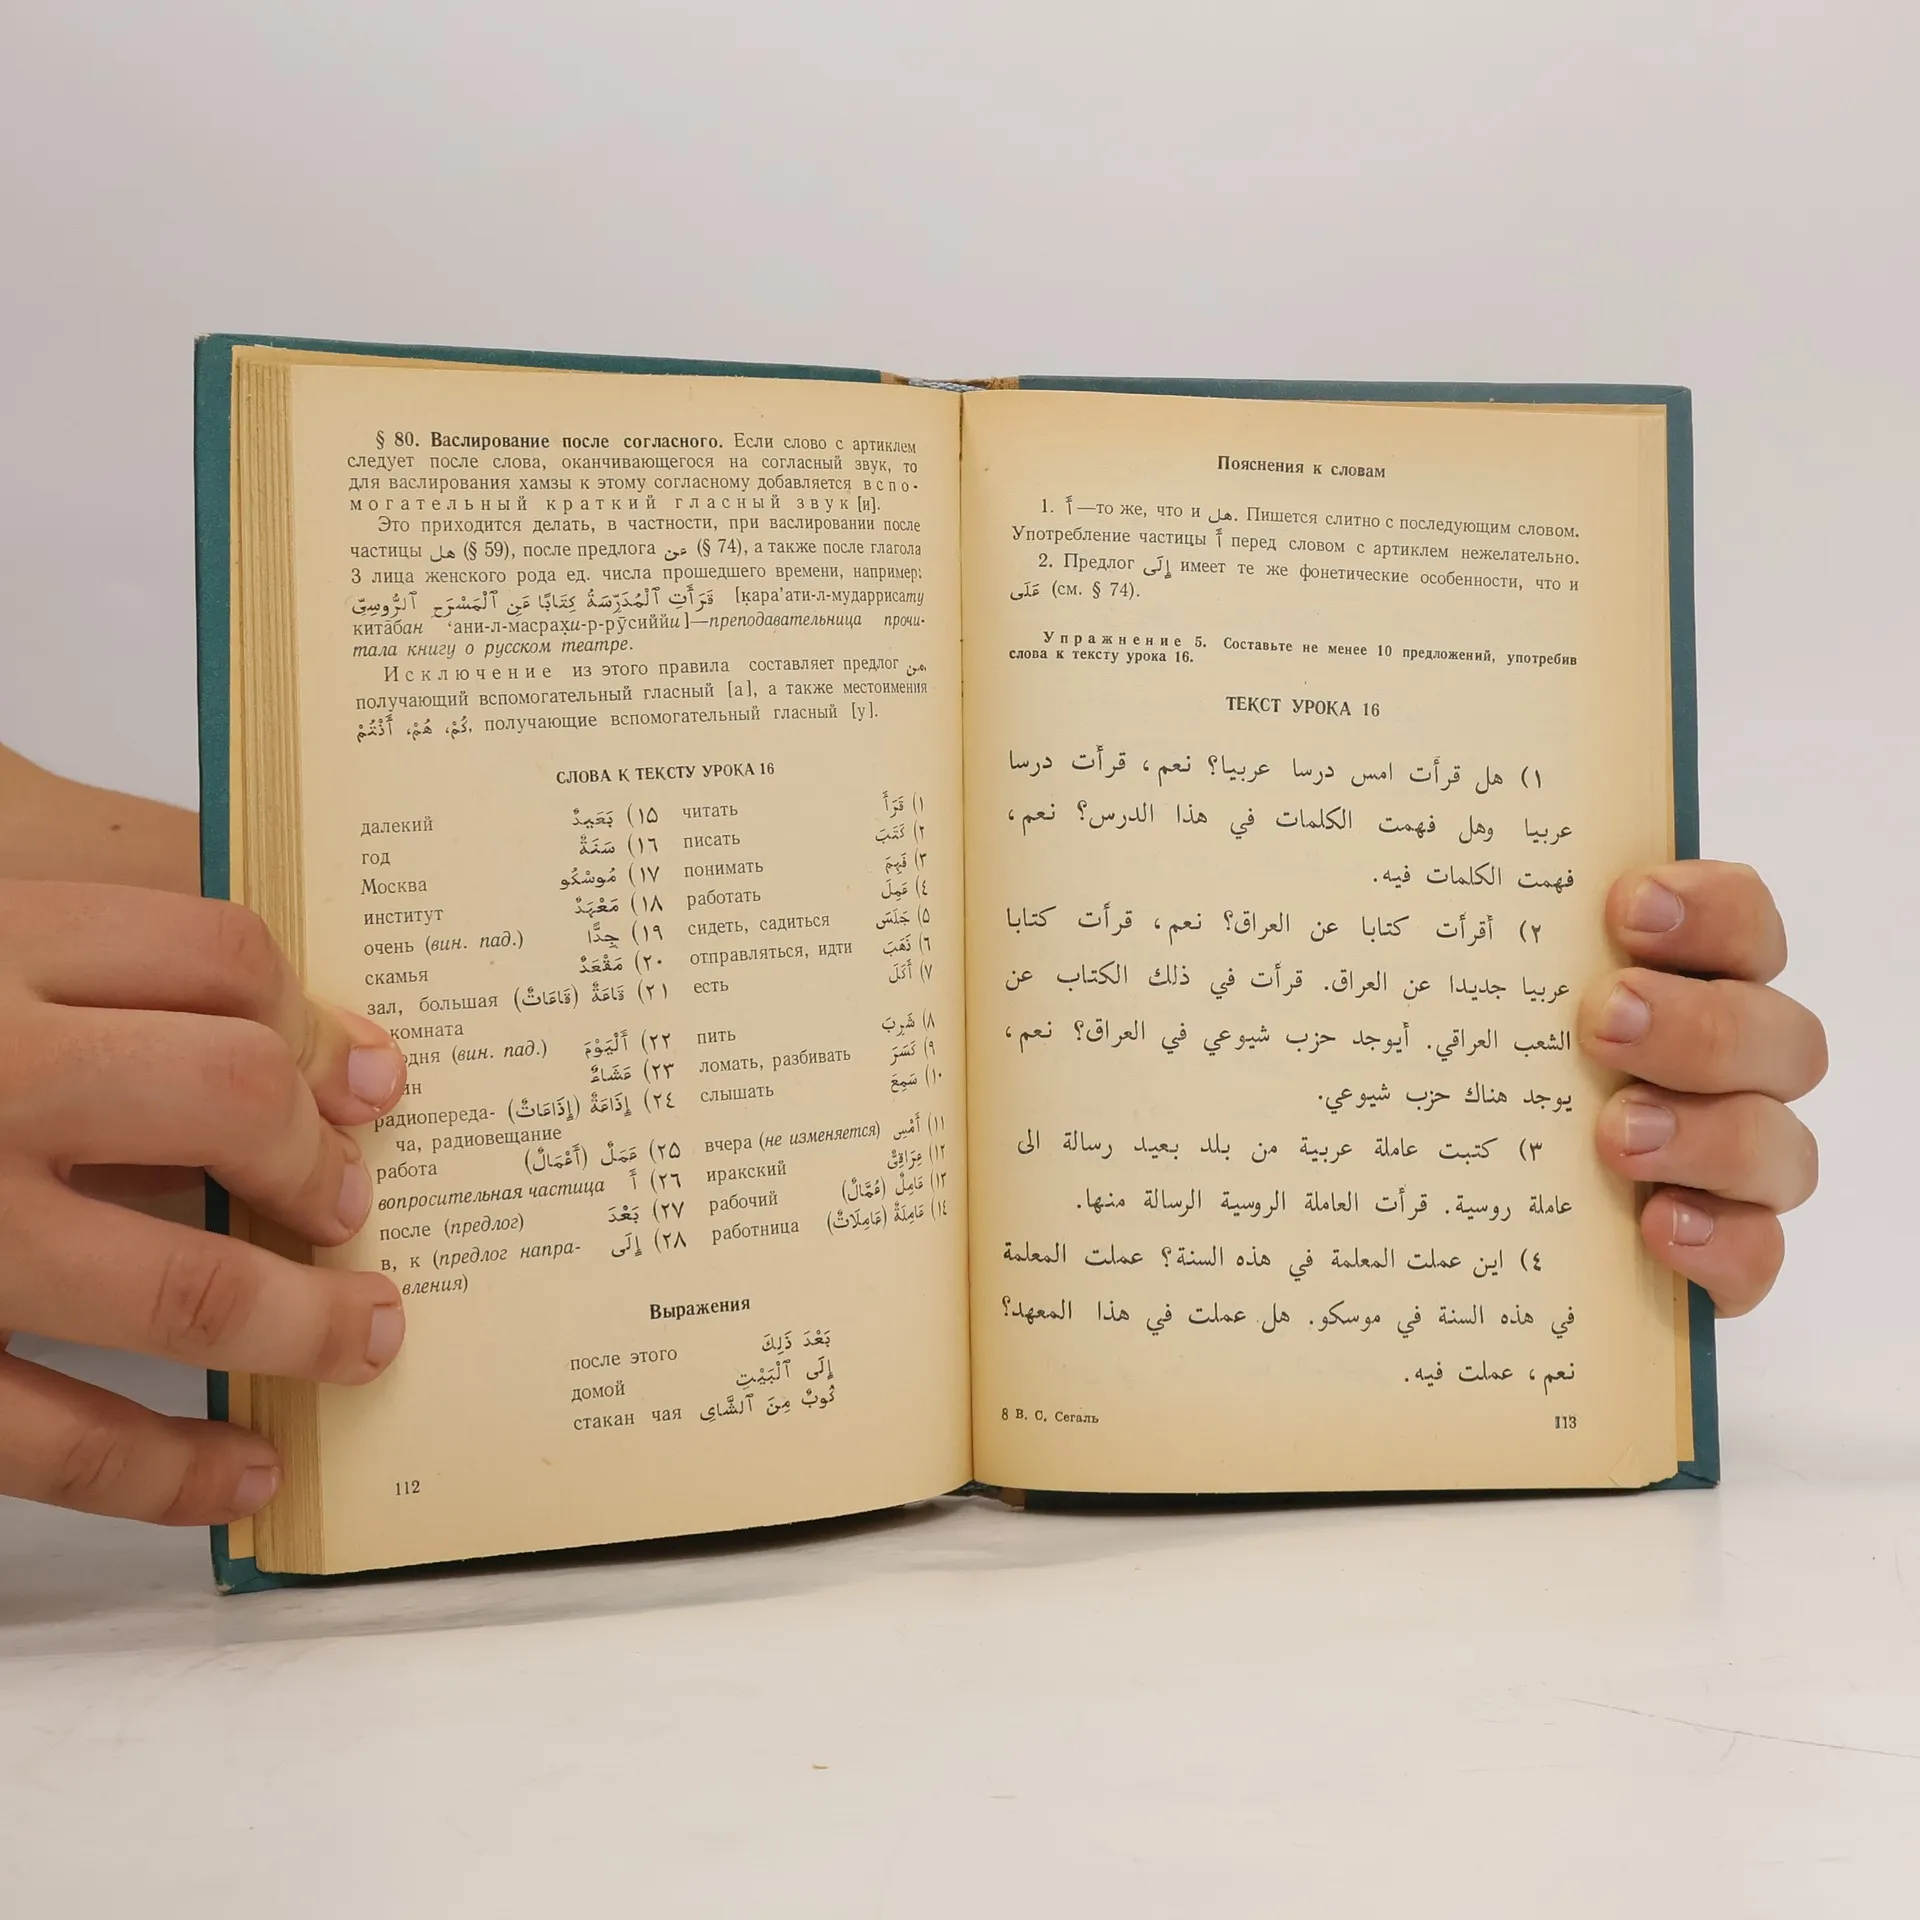 § 80. Васлирование после согласного. Если слово с артиклем
следует после слова, оканчивающегося на согласный звук, то
для васлирования хамзы к этому согласному добавляется вспо-
могательный краткий гласный звук [и].
Это приходится делать, в частности, при васлировании после
частицы هل (§ 59), после предлога عن (§ 74), а также после глагола
3 лица женского рода ед. числа прошедшего времени, например:
قَرَأَتِ ٱلْمُدَرِّسَةُ كِتَابًا عَنِ ٱلْمَسْرَحِ ٱلرُّوسِيِّ [қара’ати-л-мударрисату
китāбан ‘ани-л-масрахи-р-рӯсиййи]—преподавательница прочи-
тала книгу о русском театре.
Исключение из этого правила составляет предлог من,
получающий вспомогательный гласный [а], а также местоимения
كُمْ، هُمْ، أَنْتُمْ, получающие вспомогательный гласный [у].
СЛОВА К ТЕКСТУ УРОКА 16
١) قَرَأَ читать
٢) كَتَبَ писать
٣) فَهِمَ понимать
٤) عَمِلَ работать
٥) جَلَسَ сидеть, садиться
٦) ذَهَبَ отправляться, идти
٧) أَكَلَ есть
٨) شَرِبَ пить
٩) كَسَرَ ломать, разбивать
١٠) سَمِعَ слышать
١١) أَمْسِ вчера (не изменяется)
١٢) عِرَاقِيٌّ иракский
١٣) عَامِلٌ (عُمَّالٌ) рабочий
١٤) عَامِلَةٌ (عَامِلَاتٌ) работница
١٥) بَعِيدٌ далекий
١٦) سَنَةٌ год
١٧) مُوسْكُو Москва
١٨) مَعْهَدٌ институт
١٩) جِدًّا очень (вин. пад.)
٢٠) مَقْعَدٌ скамья
٢١) قَاعَةٌ (قَاعَاتٌ) зал, большая
комната
٢٢) أَلْيَوْمَ одня (вин. пад.)
٢٣) عَشَاءٌ ин
٢٤) إِذَاعَةٌ (إِذَاعَاتٌ) радиопереда-
ча, радиовещание
٢٥) عَمَلٌ (أَعْمَالٌ) работа
٢٦) أَ вопросительная частица
٢٧) بَعْدَ после (предлог)
٢٨) إِلَى в, к (предлог напра-
вления)
Выражения
بَعْدَ ذَلِكَ после этого
إِلَى ٱلْبَيْتِ домой
كُوبٌ مِنَ ٱلشَّاىِ стакан чая
112
Пояснения к словам
1. أَ—то же, что и هل. Пишется слитно с последующим словом.
Употребление частицы أَ перед словом с артиклем нежелательно.
2. Предлог إِلَى имеет те же фонетические особенности, что и
عَلَى (см. § 74).
Упражнение 5. Составьте не менее 10 предложений, употребив
слова к тексту урока 16.
ТЕКСТ УРОКА 16
١) هل قرأت امس درسا عربيا؟ نعم، قرأت درسا
عربيا وهل فهمت الكلمات في هذا الدرس؟ نعم،
فهمت الكلمات فيه.
٢) أقرأت كتابا عن العراق؟ نعم، قرأت كتابا
عربيا جديدا عن العراق. قرأت في ذلك الكتاب عن
الشعب العراقي. أيوجد حزب شيوعي في العراق؟ نعم،
يوجد هناك حزب شيوعي.
٣) كتبت عاملة عربية من بلد بعيد رسالة الى
عاملة روسية. قرأت العاملة الروسية الرسالة منها.
٤) اين عملت المعلمة في هذه السنة؟ عملت المعلمة
في هذه السنة في موسكو. هل عملت في هذا المعهد؟
نعم، عملت فيه.
8 В. С. Сегаль
113